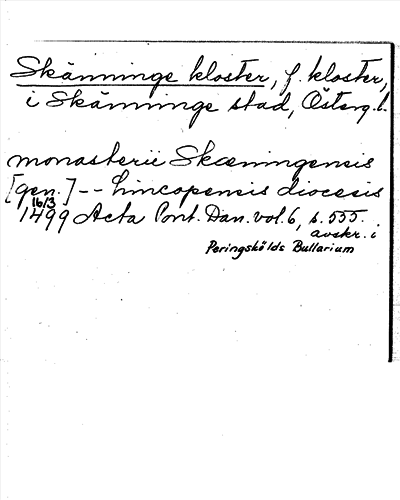 Skänninge kloster, f. kloster,
i Skänninge stad, Österg. l.
monasterii Skæningensis
[gen.] -- Lincopensis diocesis
16/3
1499 Acta Pont. Dan. vol. 6, s. 555.
avskr. i
Peringskölds Bullarium